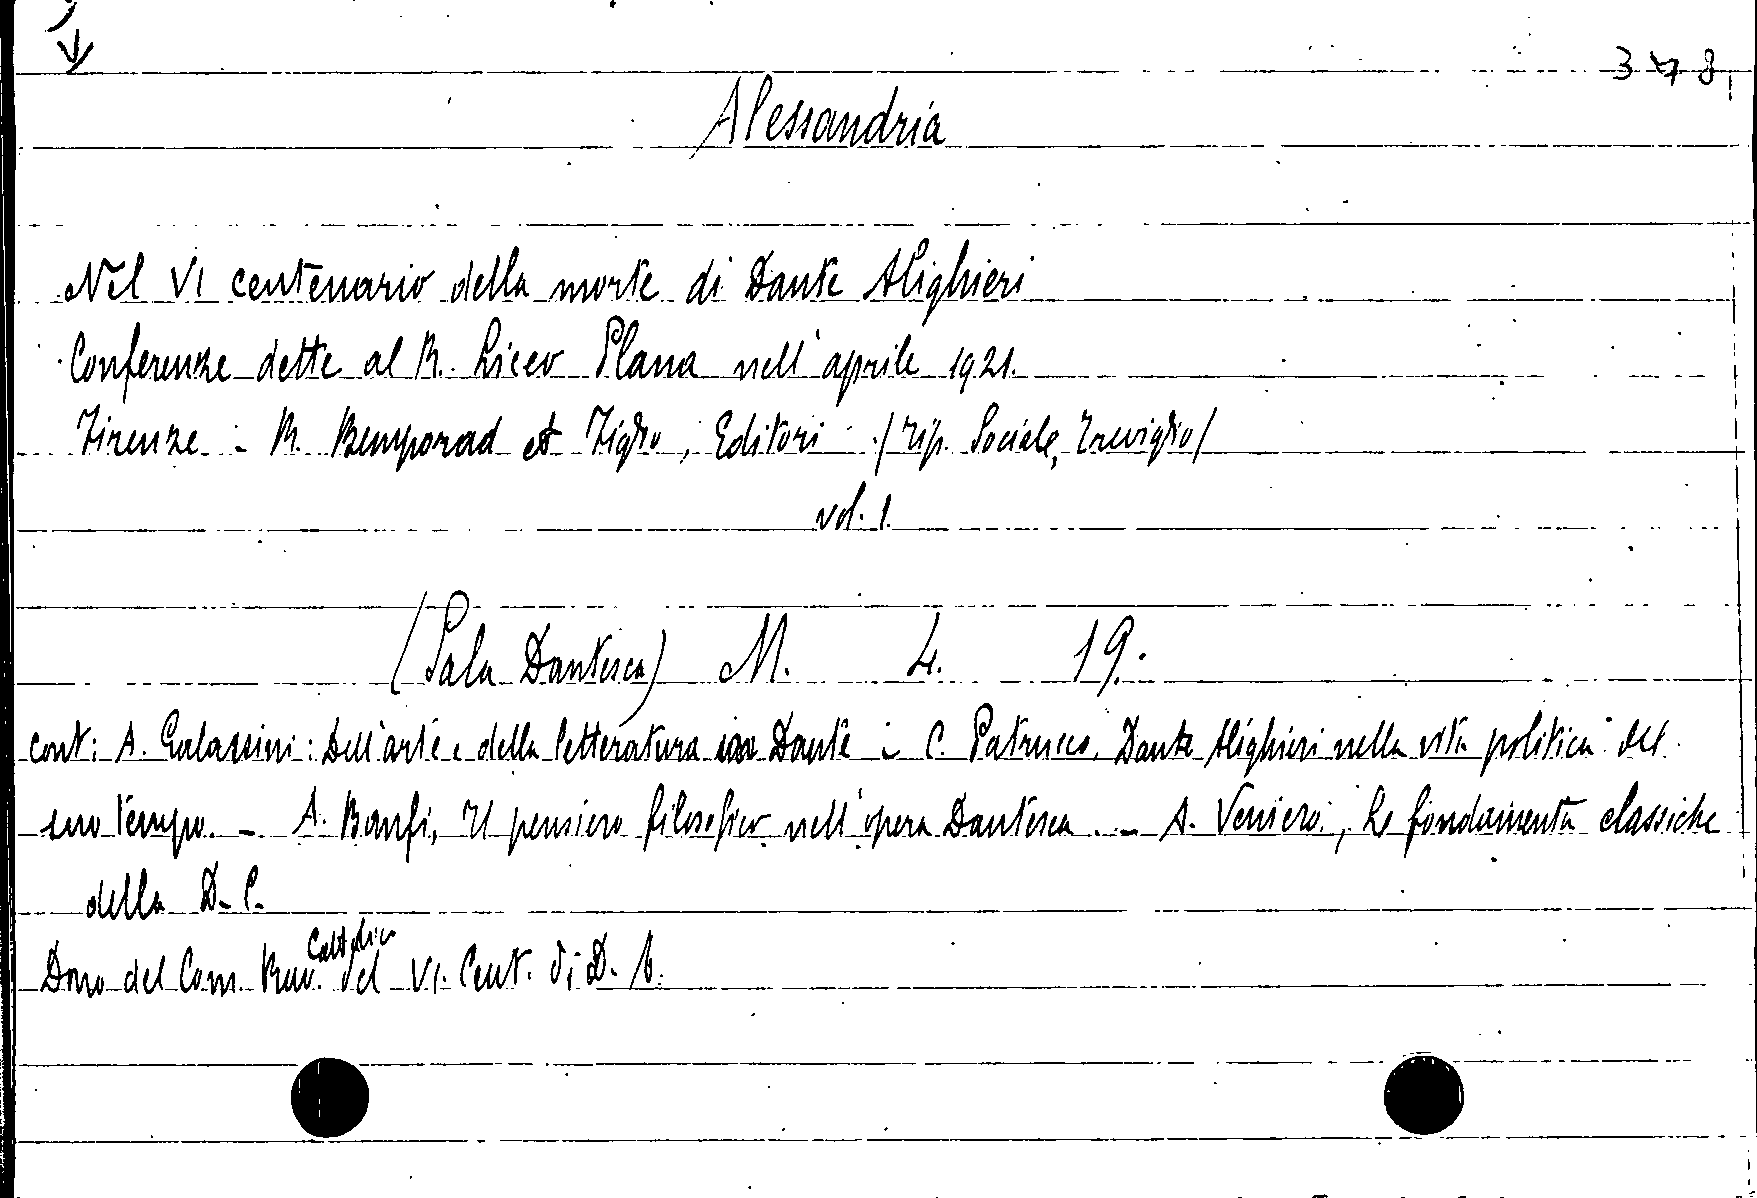 378
Alessandria
Nel VI centenario della morte di Dante Alighieri
Conferenze dette al R. Liceo Plana nell'aprile 1921.
Firenze - R. Bemporad et Figlio, Editori - /Tip. Sociale, Treviglio/
vol. 1.
(Sala Dantesca) M. 4. 19.
cont: A. Galassini: Dell'arte e della letteratura in Dante - C. Patrucco, Dante Alighieri nella vita politica del
suo tempo. - A. Banfi, Il pensiero filosofico nell'opera Dantesca. - A. Veniero, Le fondamenta classiche
della D. C.
Dono del Com. Rav. Cattolico del VI. Cent. di D. A.